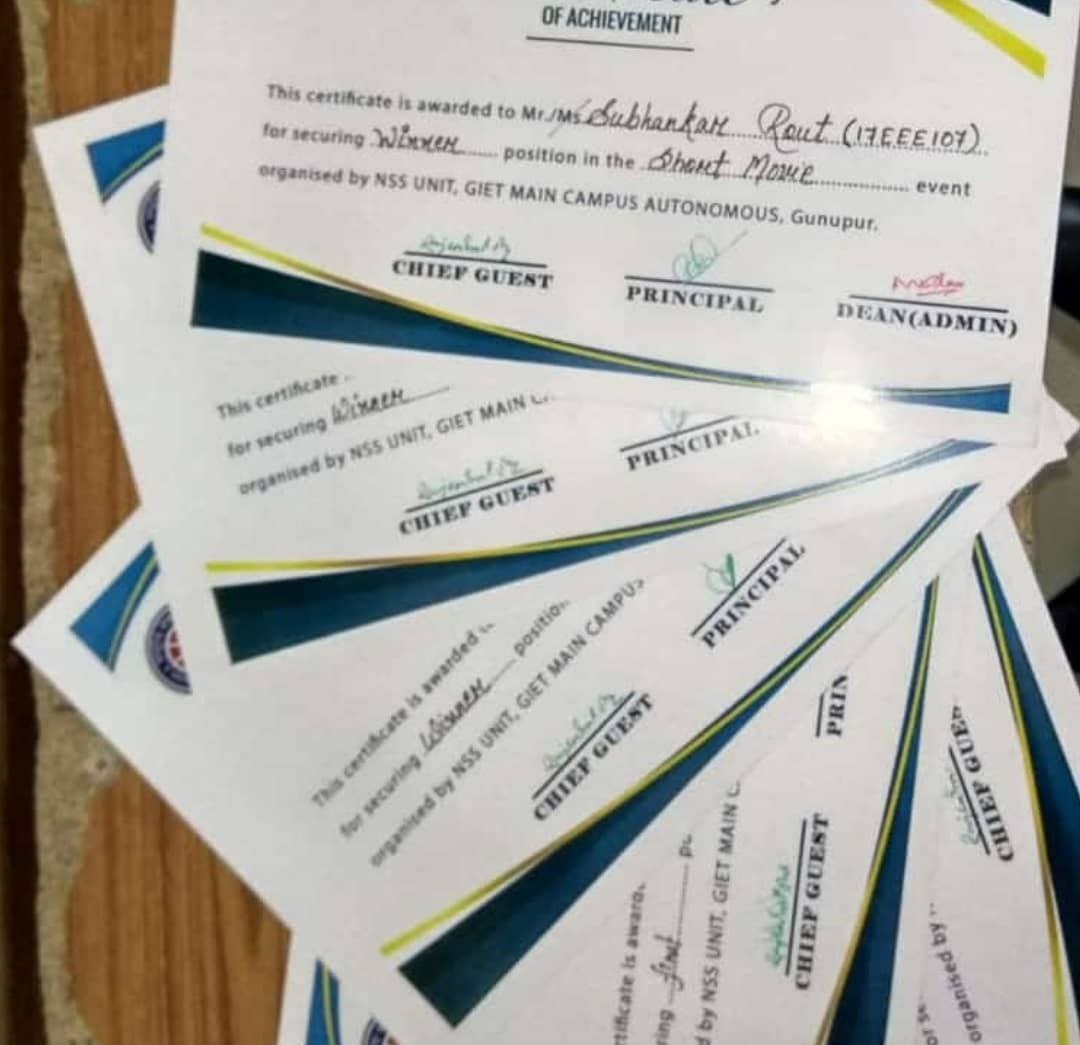 OF ACHIEVEMENT
This certificate is awarded to Mr./Ms Subhankar Rout (17EEE107)
for securing Winner position in the Short Movie event
organised by NSS UNIT, GIET MAIN CAMPUS AUTONOMOUS, Gunupur.
CHIEF GUEST PRINCIPAL DEAN(ADMIN)
This certificate
for securing Winner
organised by NSS UNIT, GIET MAIN
CHIEF GUEST PRINCIPAL
This certificate is awarded
for securing Winner position
organised by NSS UNIT, GIET MAIN CAMPUS
CHIEF GUEST PRINCIPAL
certificate is
first
by NSS UNIT, GIET MAIN
CHIEF GUEST PRIN
organised by
CHIEF GUEST